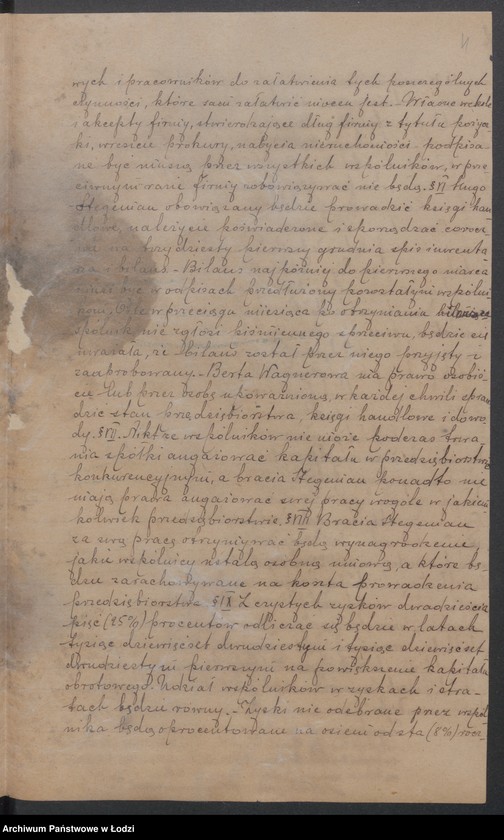 4
wych i pracowników do załatwienia tych poszczególnych
czynności, które sami załatwić niocen jest. - Własne weksle
i akcepty firmy, stwierdzające dług firmy z tytułu pożycz
ki, wreszcie prokury, nabycia nieruchomości podpisa
ne być muszą przez wszystkich wspólników, w prze
ciwnym razie firmy zobowiązywać nie będą. § VI Hugo
Stegeman obowiązany będzie prowadzić księgi han
dlowe, należycie poświadczone i sporządzać corocz
nie na trzydziesty pierwszy grudnia spis inwenta
rza i bilans. - Bilans najpóźniej do pierwszego marca
musi być w odpisach przedłużony pozostałym wspólni
kom. O ile w przeciągu miesiąca po otrzymaniu bilansu
spólnik nie zgłosi piśmiennego sprzeciwu, będzie się
uważało, że bilans został przez niego przyjęty i
zaaprobowany. - Berta Wagnerowa ma prawo osobiś
cie lub przez osobę upoważnioną, w każdej chwili spraw
dzić stan przedsiębiorstwa, księgi handlowe i dowo
dy. § VII. Nikt ze wspólników nie może podczas trwa
nia spółki angażować kapitału w przedsiębiorstwie
konkurencyjnym, a bracia Stegeman ponadto nie
mają prawa angażować swej pracy wogóle w jakiem
kolwiek przedsiębiorstwie. § VIII Bracia Stegeman
za swą pracę otrzymywać będą wynagrodzenie,
jakie wspólnicy ustalą osobną umową, a które bę
dzie zarachowywane na koszta prowadzenia
przedsiębiorstwa § IX Z czystych zysków dwadzieścia
pięć (25%) procentów odliczać się będzie w latach
tysiąc dziewięćset dwudziestym i tysiąc dziewięćset
dwudziestym pierwszym na powiększenie kapitału
obrotowego. Udział wspólników w zyskach i stra-
tach będzie równy. - Zyski nie odebrane przez wspól
nika będą oprocentowane na osiem od sta (8%) rocz-
Archiwum Państwowe w Łodzi